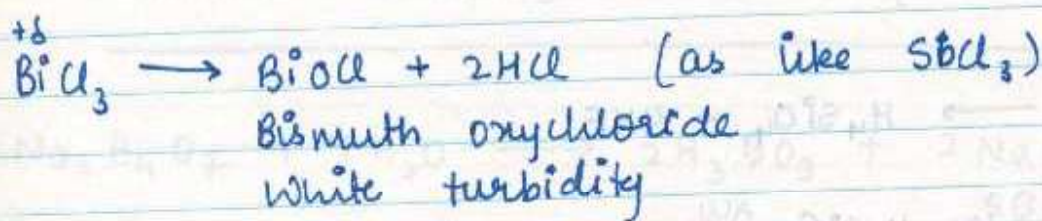 +δ
BiCl₃ ⟶ BiOCl + 2HCl (as like SbCl₃)
Bismuth oxychloride
White turbidity